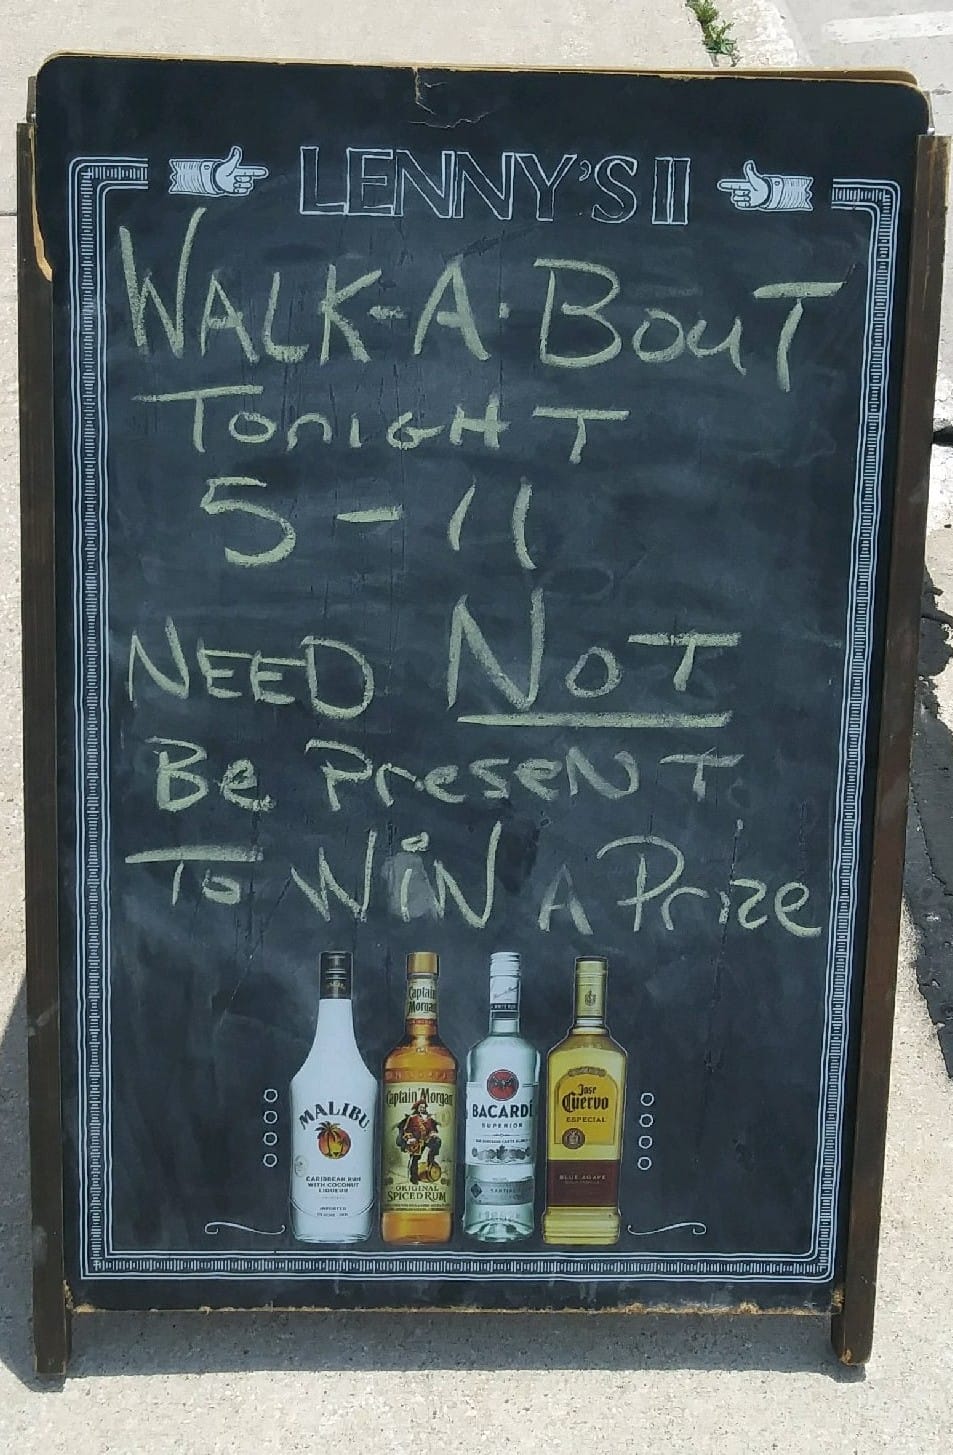 LENNY'S II
WALK-A-BouT
TonigHT
5-11
NEED NoT
Be PreseNT
To WiN A Prize
MALIBU
CARIBBEAN RUM
WITH COCONUT
LIQUEUR
IMPORTED
Captain
Morgan
Captain Morgan
ORIGINAL
SPICED RUM
BACARDÍ
SUPERIOR
Jose
Cuervo
ESPECIAL
BLUE AGAVE